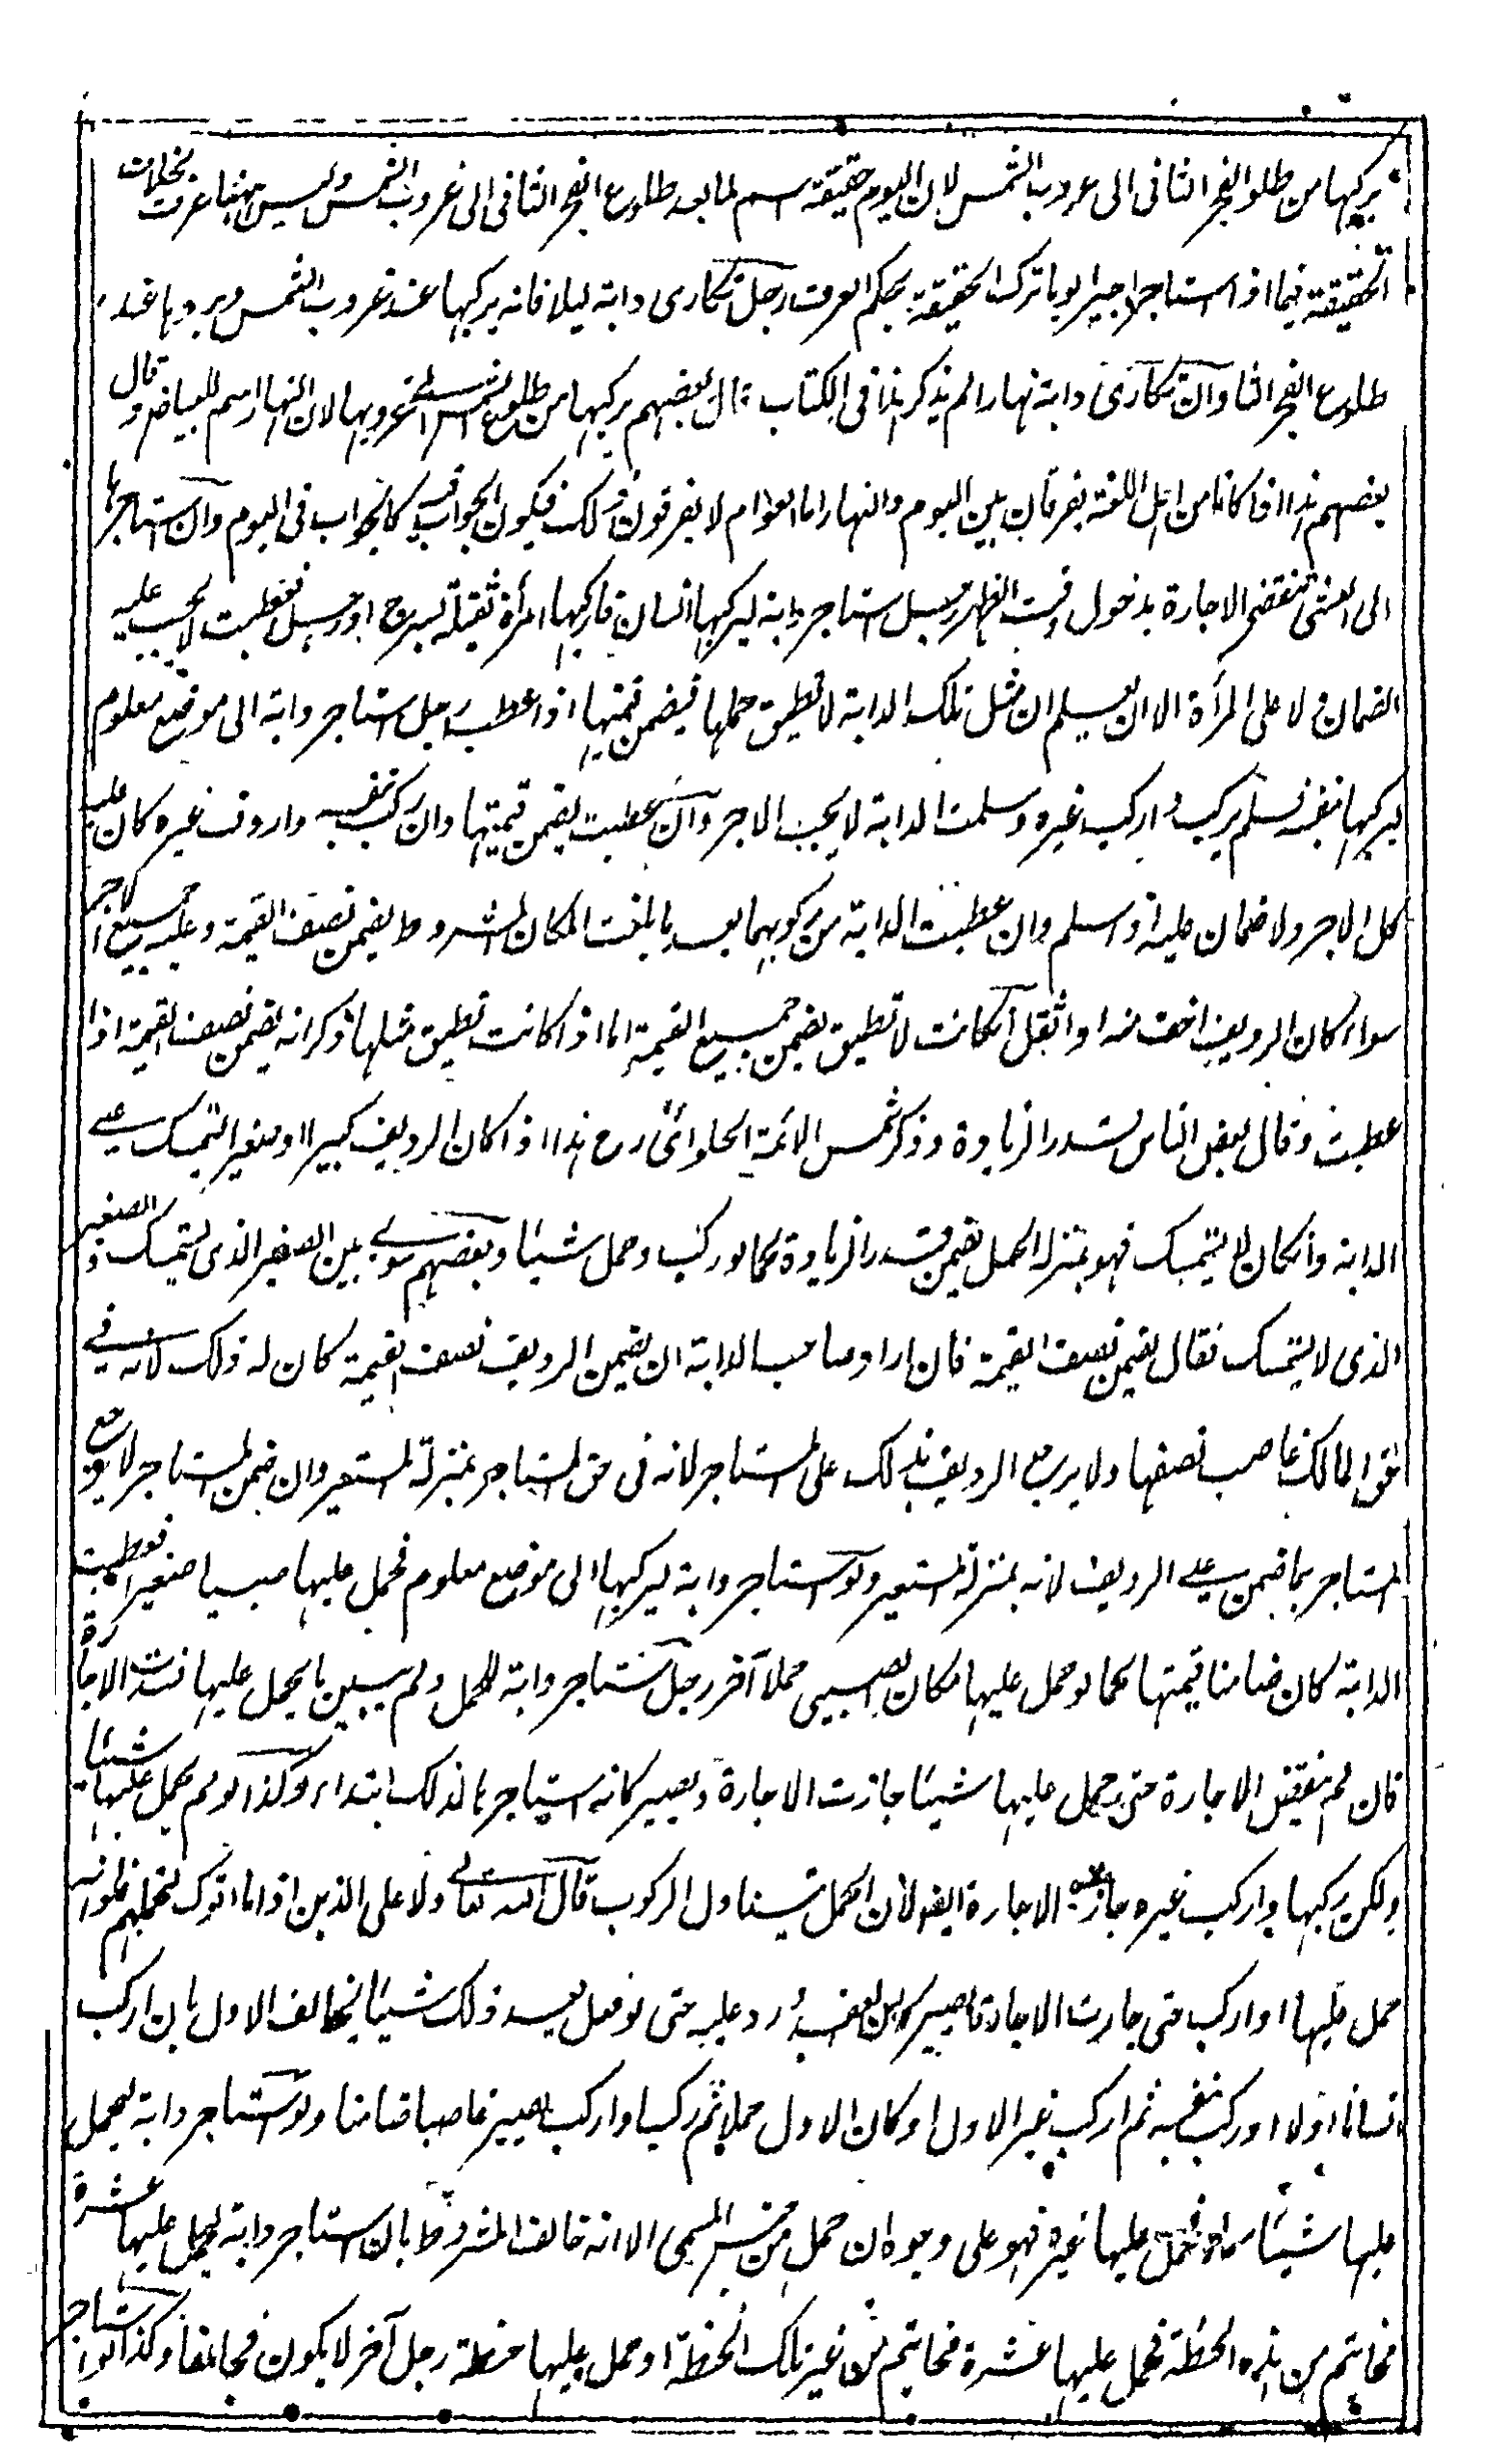 يركبها من طلوع الفجر الثانى الى غروب الشمس لان اليوم حقيقة اسم لما بعد طلوع الفجر الثانى الى غروب الشمس وليس ههنا عرف بخلاف
الحقيقة فيما اذا استاجر اجيرا يوما ترك الحقيقة بحكم العرف رجل تكارى دابة ليلا فانه يركبها عند غروب الشمس ويردها عند
طلوع الفجر الثانى وان تكارى دابة نهارا لم يذكر هذا فى الكتاب قال بعضهم يركبها من طلوع الشمس الى غروبها لان النهار اسم للبياض وقال
بعضهم هذا اذا كانا من اهل اللغة يفرقان بين اليوم والنهار اما العوام لا يفرقون ذلك فيكون الجواب فيه كالجواب فى اليوم وان استاجرها
الى العشى تنقضى الاجارة بدخول وقت الظهر رجل استاجر دابة ليركبها انسان فاركبها امرأة ثقيلة بسرج او رحل فعطبت لا يجب عليه
الضمان ولا على المرأة الا ان يعلم ان مثل تلك الدابة لا تطيق حملها فيضمن قيمتها اذا عطب رجل استاجر دابة الى موضع معلوم
ليركبها بنفسه فلم يركب واركب غيره وسلمت الدابة لا يجب الاجر وان عطبت يضمن قيمتها وان ركب بنفسه واردف غيره كان عليه
كل الاجر ولا ضمان عليه اذا سلم وان عطبت الدابة من ركوبهما بعد ما بلغت المكان المشروط يضمن نصف القيمة وعليه جميع الاجر
سواء كان الرديف اخف منه او اثقل ان كانت لا تطيق يضمن جميع القيمة اما اذا كانت تطيق مثلها ذكر انه يضمن نصف القيمة اذا
عطبت وقال بعض الناس بقدر الزيادة وذكر شمس الائمة الحلوائى رح هذا اذا كان الرديف كبيرا او صغيرا يتمسك على
الدابة وان كان لا يتمسك فهو بمنزلة الحمل يضمن قدر الزيادة كما لو ركب وحمل شيئا وبعضهم سوى بين الصغير الذى يتمسك والصغير
الذى لا يتمسك فقال يضمن نصف القيمة فان اراد صاحب الدابة ان يضمن الرديف نصف القيمة كان له ذلك لانه فى
حق المالك غاصب نصفها ولا يرجع الرديف بذلك على المستاجر لانه فى حق المستاجر بمنزلة المستعير وان ضمن المستاجر لا يرجع
المستاجر بما ضمن على الرديف لانه بمنزلة المستعير ولو استاجر دابة ليركبها الى موضع معلوم فحمل عليها صبيا صغيرا فعطبت
الدابة كان ضامنا قيمتها كما لو حمل عليها مكان الصبى حملا آخر رجل استاجر دابة للحمل ولم يبين ما يحمل عليها فسدت الاجارة
فان لم تنقض الاجارة حتى حمل عليها شيئا جازت الاجارة ويصير كانه استاجرها لذلك ابتداء وكذا لو لم يحمل عليها شيئا
ولكن ركبها او اركب غيره جازت الاجارة ايضا لان الحمل يتناول الركوب قال الله تعالى ولا على الذين اذا ما اتوك لتحملهم فلو انه
حمل عليها او اركب حتى جازت الاجارة يصير كان العقد ورد عليه حتى لو فعل بعد ذلك شيئا يخالف الاول بان اركب
انسانا اولا او ركب بنفسه ثم اركب غير الاول او كان الاول حملا ثم ركب او اركب يصير غاصبا ضامنا ولو استاجر دابة ليحمل
عليها شيئا سماه فحمل عليها غيره فهو على وجوه ان حمل من جنس المسمى الا انه خالف المشروط بان استاجر دابة ليحمل عليها عشرة
مخاتيم من هذه الحنطة فحمل عليها عشرة مخاتيم من غير تلك الحنطة او حمل عليها حنطة رجل آخر لا يكون مخالفا وكذا لو استاجر